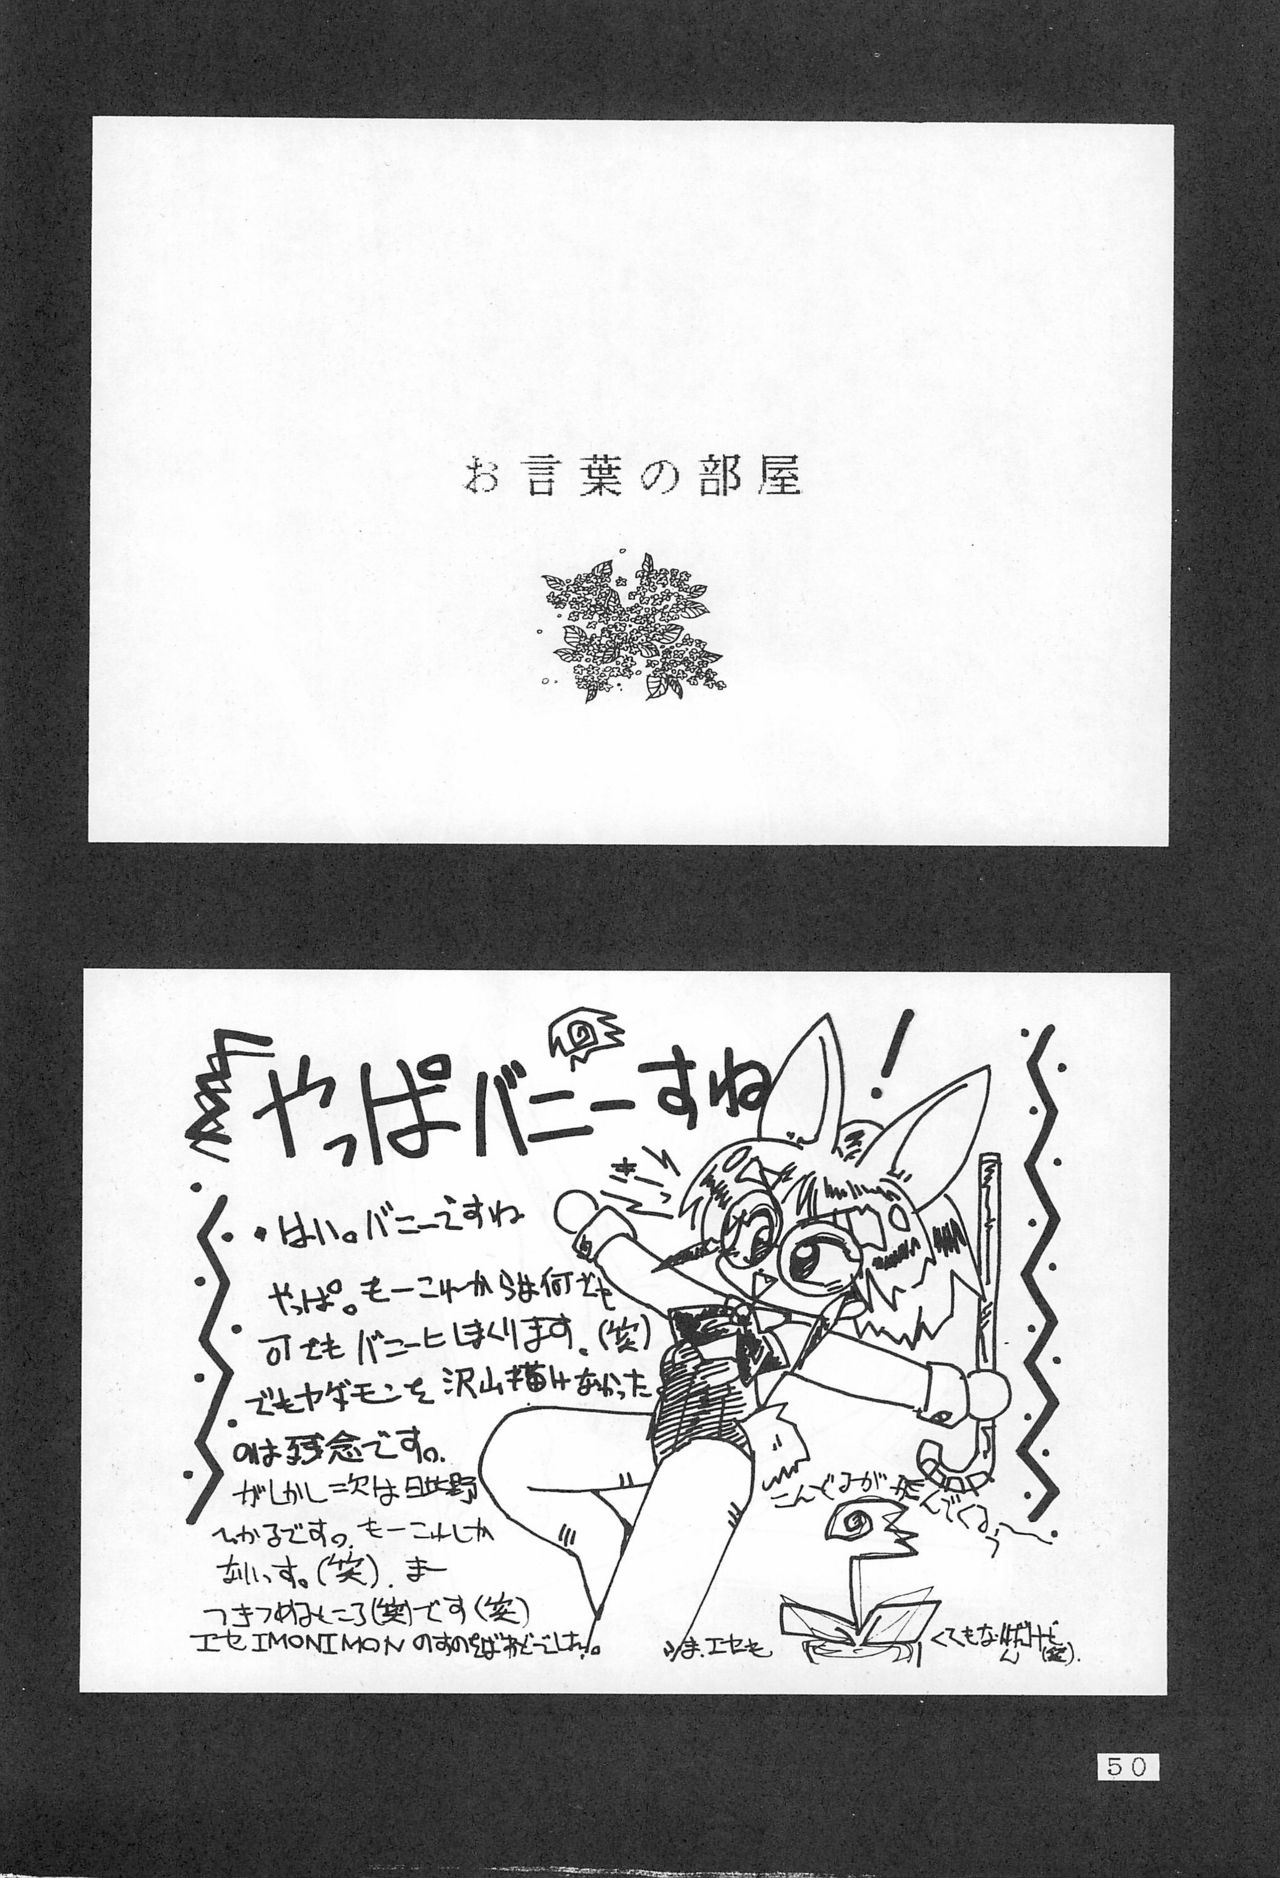 お言葉の部屋
やっぱバニーすね!
・はい。バニーですね
やっぱ。もーこれからは何でも
可でもバニーヒしまくります。(笑)
でもヤダモンを沢山描けなかった
のは残念です。
がしかし二次は日比野
ひかるです。もーこれしか
ないっす。(笑).まー
つきつめるところ(笑)です(笑)
エセIMONIMON
こんどるが飛んでくるっ〜
ま、エセも
くてもな
(笑).
50